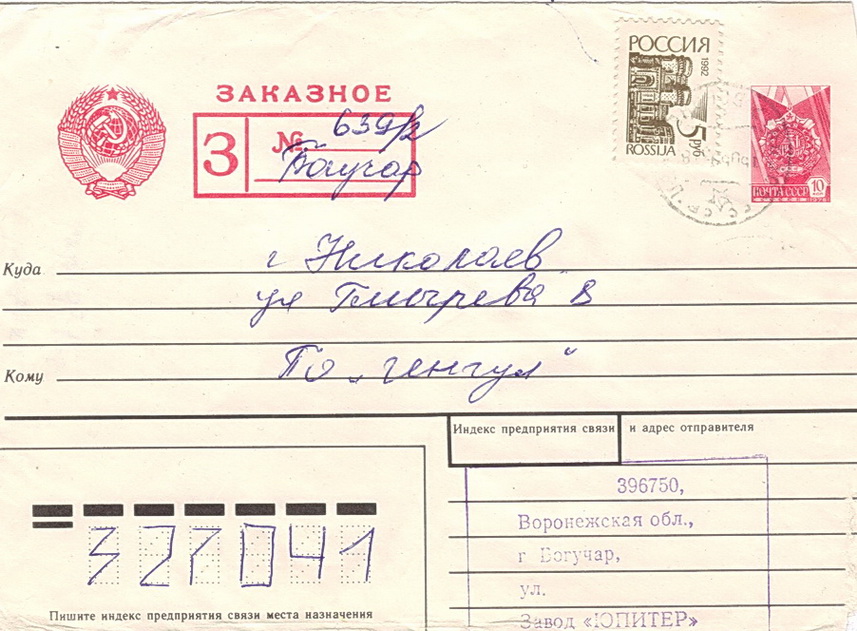 ЗАКАЗНОЕ
З № 639/2
Богучар
РОССИЯ
1992
5 руб
ROSSIJA
ПОЧТА СССР 10 коп
Куда г Николаев
ул 8
Кому По „ "
Индекс предприятия связи и адрес отправителя
327041
Пишите индекс предприятия связи места назначения
396750,
Воронежская обл.,
г Богучар,
ул.
Завод «ЮПИТЕР»